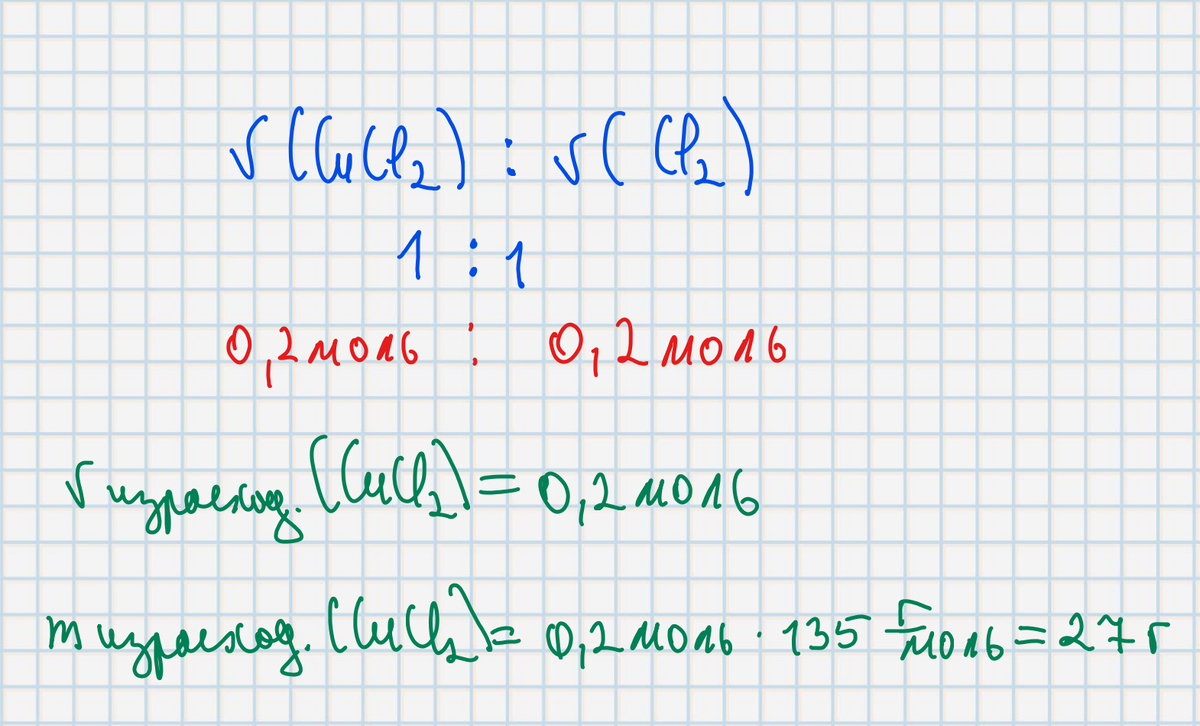 ν(CuCl₂) : ν(Cl₂)
1 : 1
0,2 моль : 0,2 моль
ν израсход. (CuCl₂) = 0,2 моль
m израсход. (CuCl₂) = 0,2 моль · 135 г/моль = 27 г